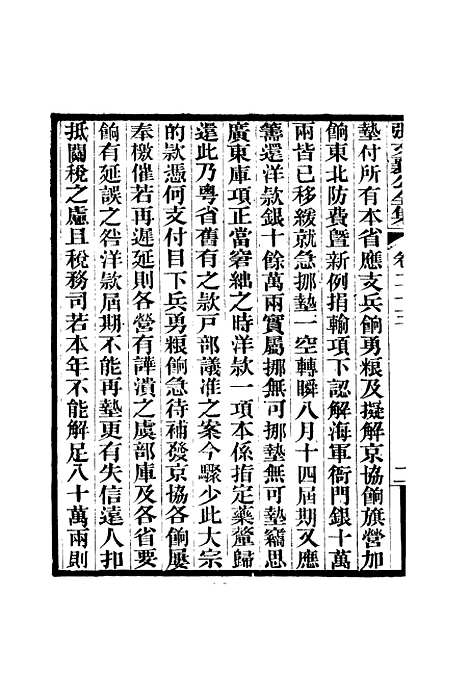 張文襄公全集 卷二十三 二
墊付所有本省應支兵餉勇糧及擬解京協餉旗營加
餉東北防費曁新例捐輸項下認解海軍衙門銀十萬
兩皆已移緩就急挪墊一空轉瞬八月十四屆期又應
籌還洋款銀十餘萬兩實屬挪無可挪墊無可墊竊思
廣東庫項正當窘絀之時洋款一項本係指定藥釐歸
還此乃粤省舊有之款戸部議准之案今驟少此大宗
的款憑何支付目下兵勇粮餉急待補發京協各餉屢
奉檄催若再遲延則各營有譁潰之虞部庫及各省要
餉有延誤之咎洋款屆期不能再墊更有失信遠人扣
抵關稅之慮且稅務司若本年不能解足八十萬兩則